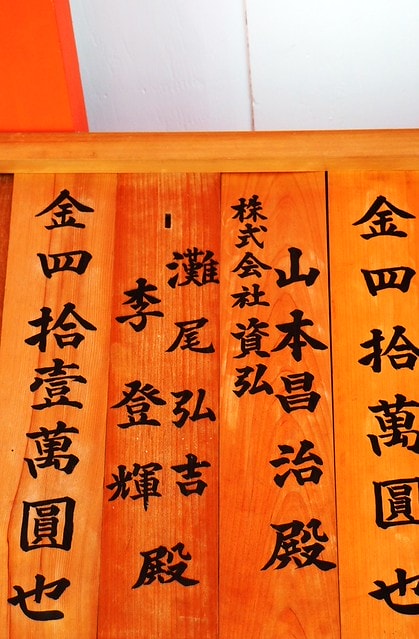 金四拾萬圓也
株式会社資弘
山本昌治殿
灘尾弘吉
李登輝殿
金四拾壹萬圓也